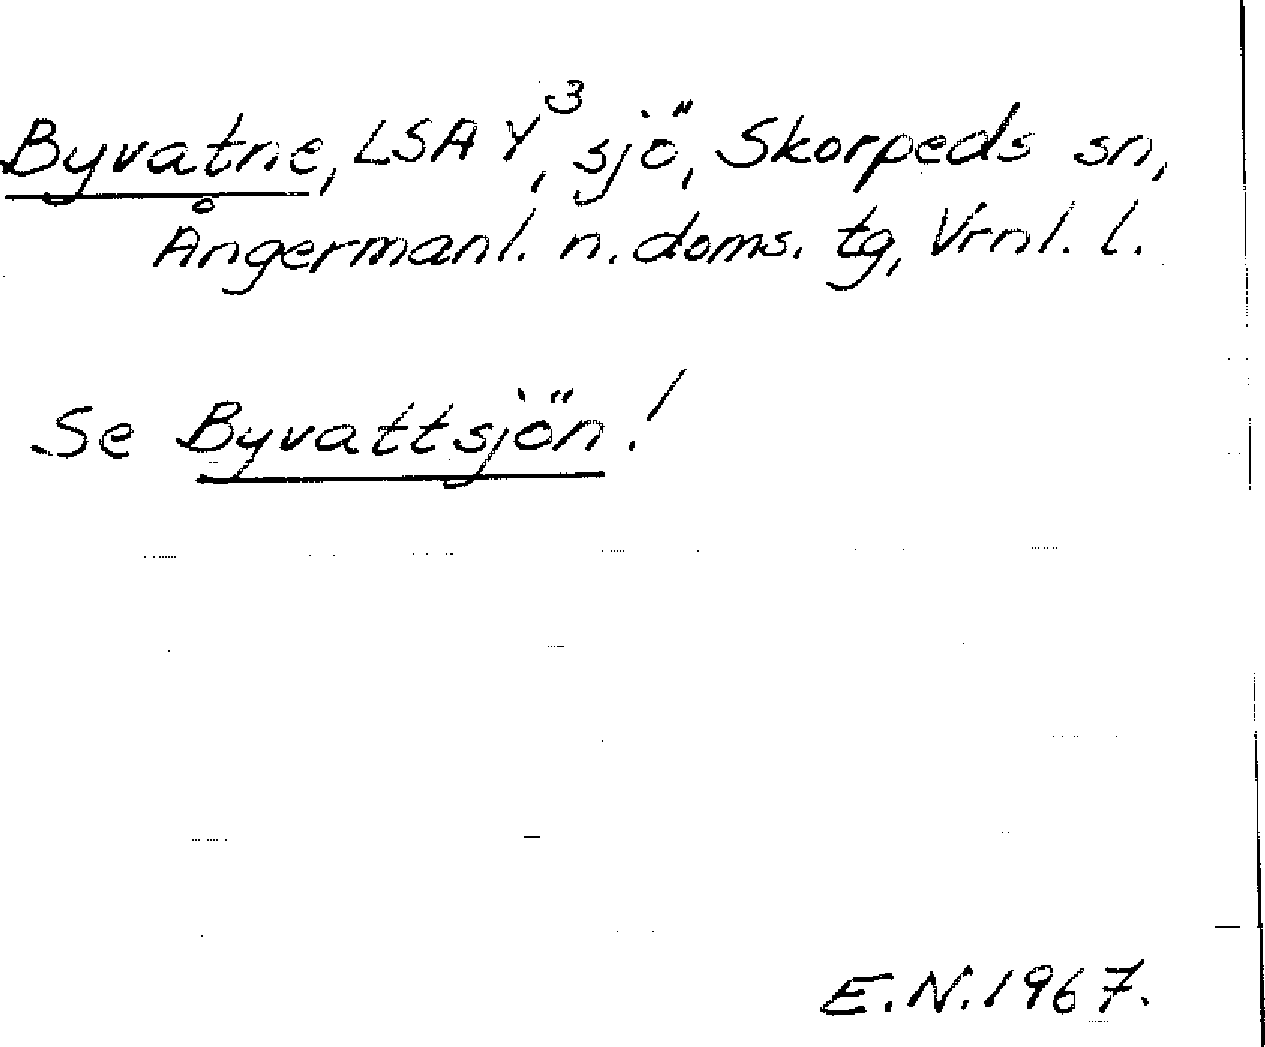 Byvatne, LSA Y³, sjö, Skorpeds sn,
Ångermanl. n. doms. tg, Vrnl. l.
Se Byvattsjön!
E.N. 1967.